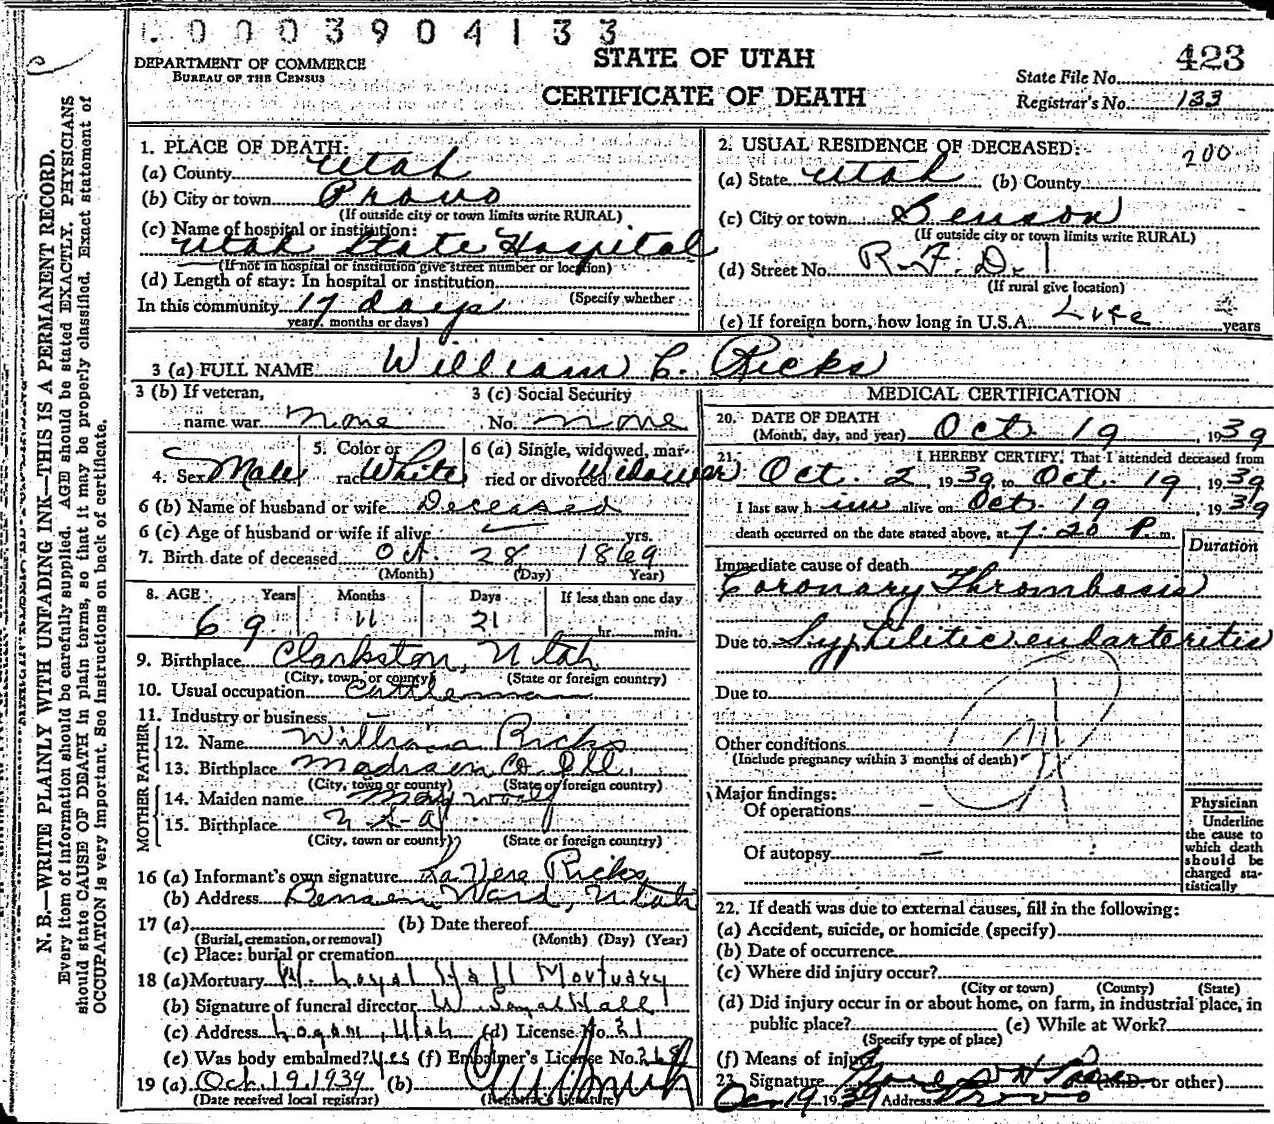 0003904133
STATE OF UTAH
423
DEPARTMENT OF COMMERCE
BUREAU OF THE CENSUS
CERTIFICATE OF DEATH
State File No.
Registrar's No. 133
N. B.—WRITE PLAINLY WITH UNFADING INK—THIS IS A PERMANENT RECORD.
Every item of information should be carefully supplied. AGE should be stated EXACTLY. PHYSICIANS
should state CAUSE OF DEATH in plain terms, so that it may be properly classified. Exact statement of
OCCUPATION is very important. See instructions on back of certificate.
1. PLACE OF DEATH:
(a) County Utah
(b) City or town Provo
(If outside city or town limits write RURAL)
(c) Name of hospital or institution:
Utah State Hospital
(If not in hospital or institution give street number or location)
(d) Length of stay: In hospital or institution
(Specify whether
In this community 17 days
years, months or days)
2. USUAL RESIDENCE OF DECEASED:
200
(a) State Utah (b) County
(c) City or town Benson
(If outside city or town limits write RURAL)
(d) Street No. R.F.D. 1
(If rural give location)
(e) If foreign born, how long in U.S.A. Life years
3 (a) FULL NAME William L. Ricks
3 (b) If veteran,
name war None
3 (c) Social Security
No. none
4. Sex Male 5. Color or race White 6 (a) Single, widowed, married or divorced Widower
6 (b) Name of husband or wife Deceased
6 (c) Age of husband or wife if alive yrs.
7. Birth date of deceased Oct. 28, 1869
(Month) (Day) (Year)
8. AGE Years Months Days If less than one day
69 11 21 hr. min.
9. Birthplace Clarkston, Utah
(City, town, or county) (State or foreign country)
10. Usual occupation Cattleman
11. Industry or business —
FATHER
12. Name William Ricks
13. Birthplace Madison Co. Ill.
(City, town or county) (State or foreign country)
MOTHER
14. Maiden name Mary Woolf
15. Birthplace U.S.A.
(City, town or county) (State or foreign country)
16 (a) Informant's own signature LaVere Ricks
(b) Address Benson Ward, Utah
17 (a) (b) Date thereof
(Burial, cremation, or removal) (Month) (Day) (Year)
(c) Place: burial or cremation
18 (a) Mortuary W. Loyal Hall Mortuary
(b) Signature of funeral director W. Loyal Hall
(c) Address Logan, Utah (d) License No. 21
(e) Was body embalmed? Yes (f) Embalmer's License No.
19 (a) Oct. 19, 1939 (b)
(Date received local registrar) (Registrar's Signature)
MEDICAL CERTIFICATION
20. DATE OF DEATH
(Month, day, and year) Oct. 19, 1939
21. I HEREBY CERTIFY, That I attended deceased from
Oct. 2, 1939, to Oct. 19, 1939
I last saw him alive on Oct. 19, 1939
death occurred on the date stated above, at 7:20 P. m.
Duration
Immediate cause of death
Coronary Thrombosis
Due to Syphilitic endarteritis
Due to
Other conditions
(Include pregnancy within 3 months of death)
Major findings:
Of operations —
Of autopsy —
Physician
Underline
the cause to
which death
should be
charged sta-
tistically
22. If death was due to external causes, fill in the following:
(a) Accident, suicide, or homicide (specify)
(b) Date of occurrence
(c) Where did injury occur?
(City or town) (County) (State)
(d) Did injury occur in or about home, on farm, in industrial place, in
public place? (e) While at Work?
(Specify type of place)
(f) Means of injury
23. Signature (M.D. or other)
Oct 19, 1939 Address Provo